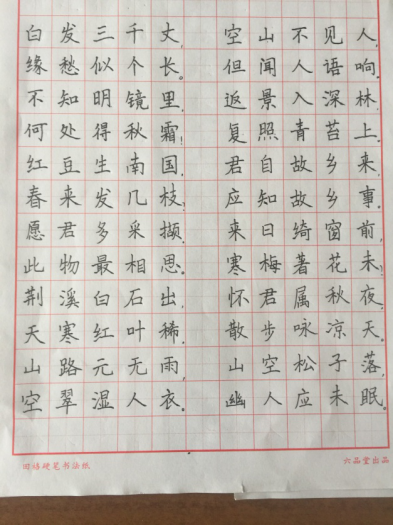 白发三千丈,
缘愁似个长。
不知明镜里,
何处得秋霜!
红豆生南国,
春来发几枝?
愿君多采撷,
此物最相思。
荆溪白石出,
天寒红叶稀。
山路元无雨,
空翠湿人衣。
空山不见人,
但闻人语响。
返景入深林,
复照青苔上。
君自故乡来,
应知故乡事。
来日绮窗前,
寒梅著花未?
怀君属秋夜,
散步咏凉天。
山空松子落,
幽人应未眠。
硬笔书法纸
六品堂出品